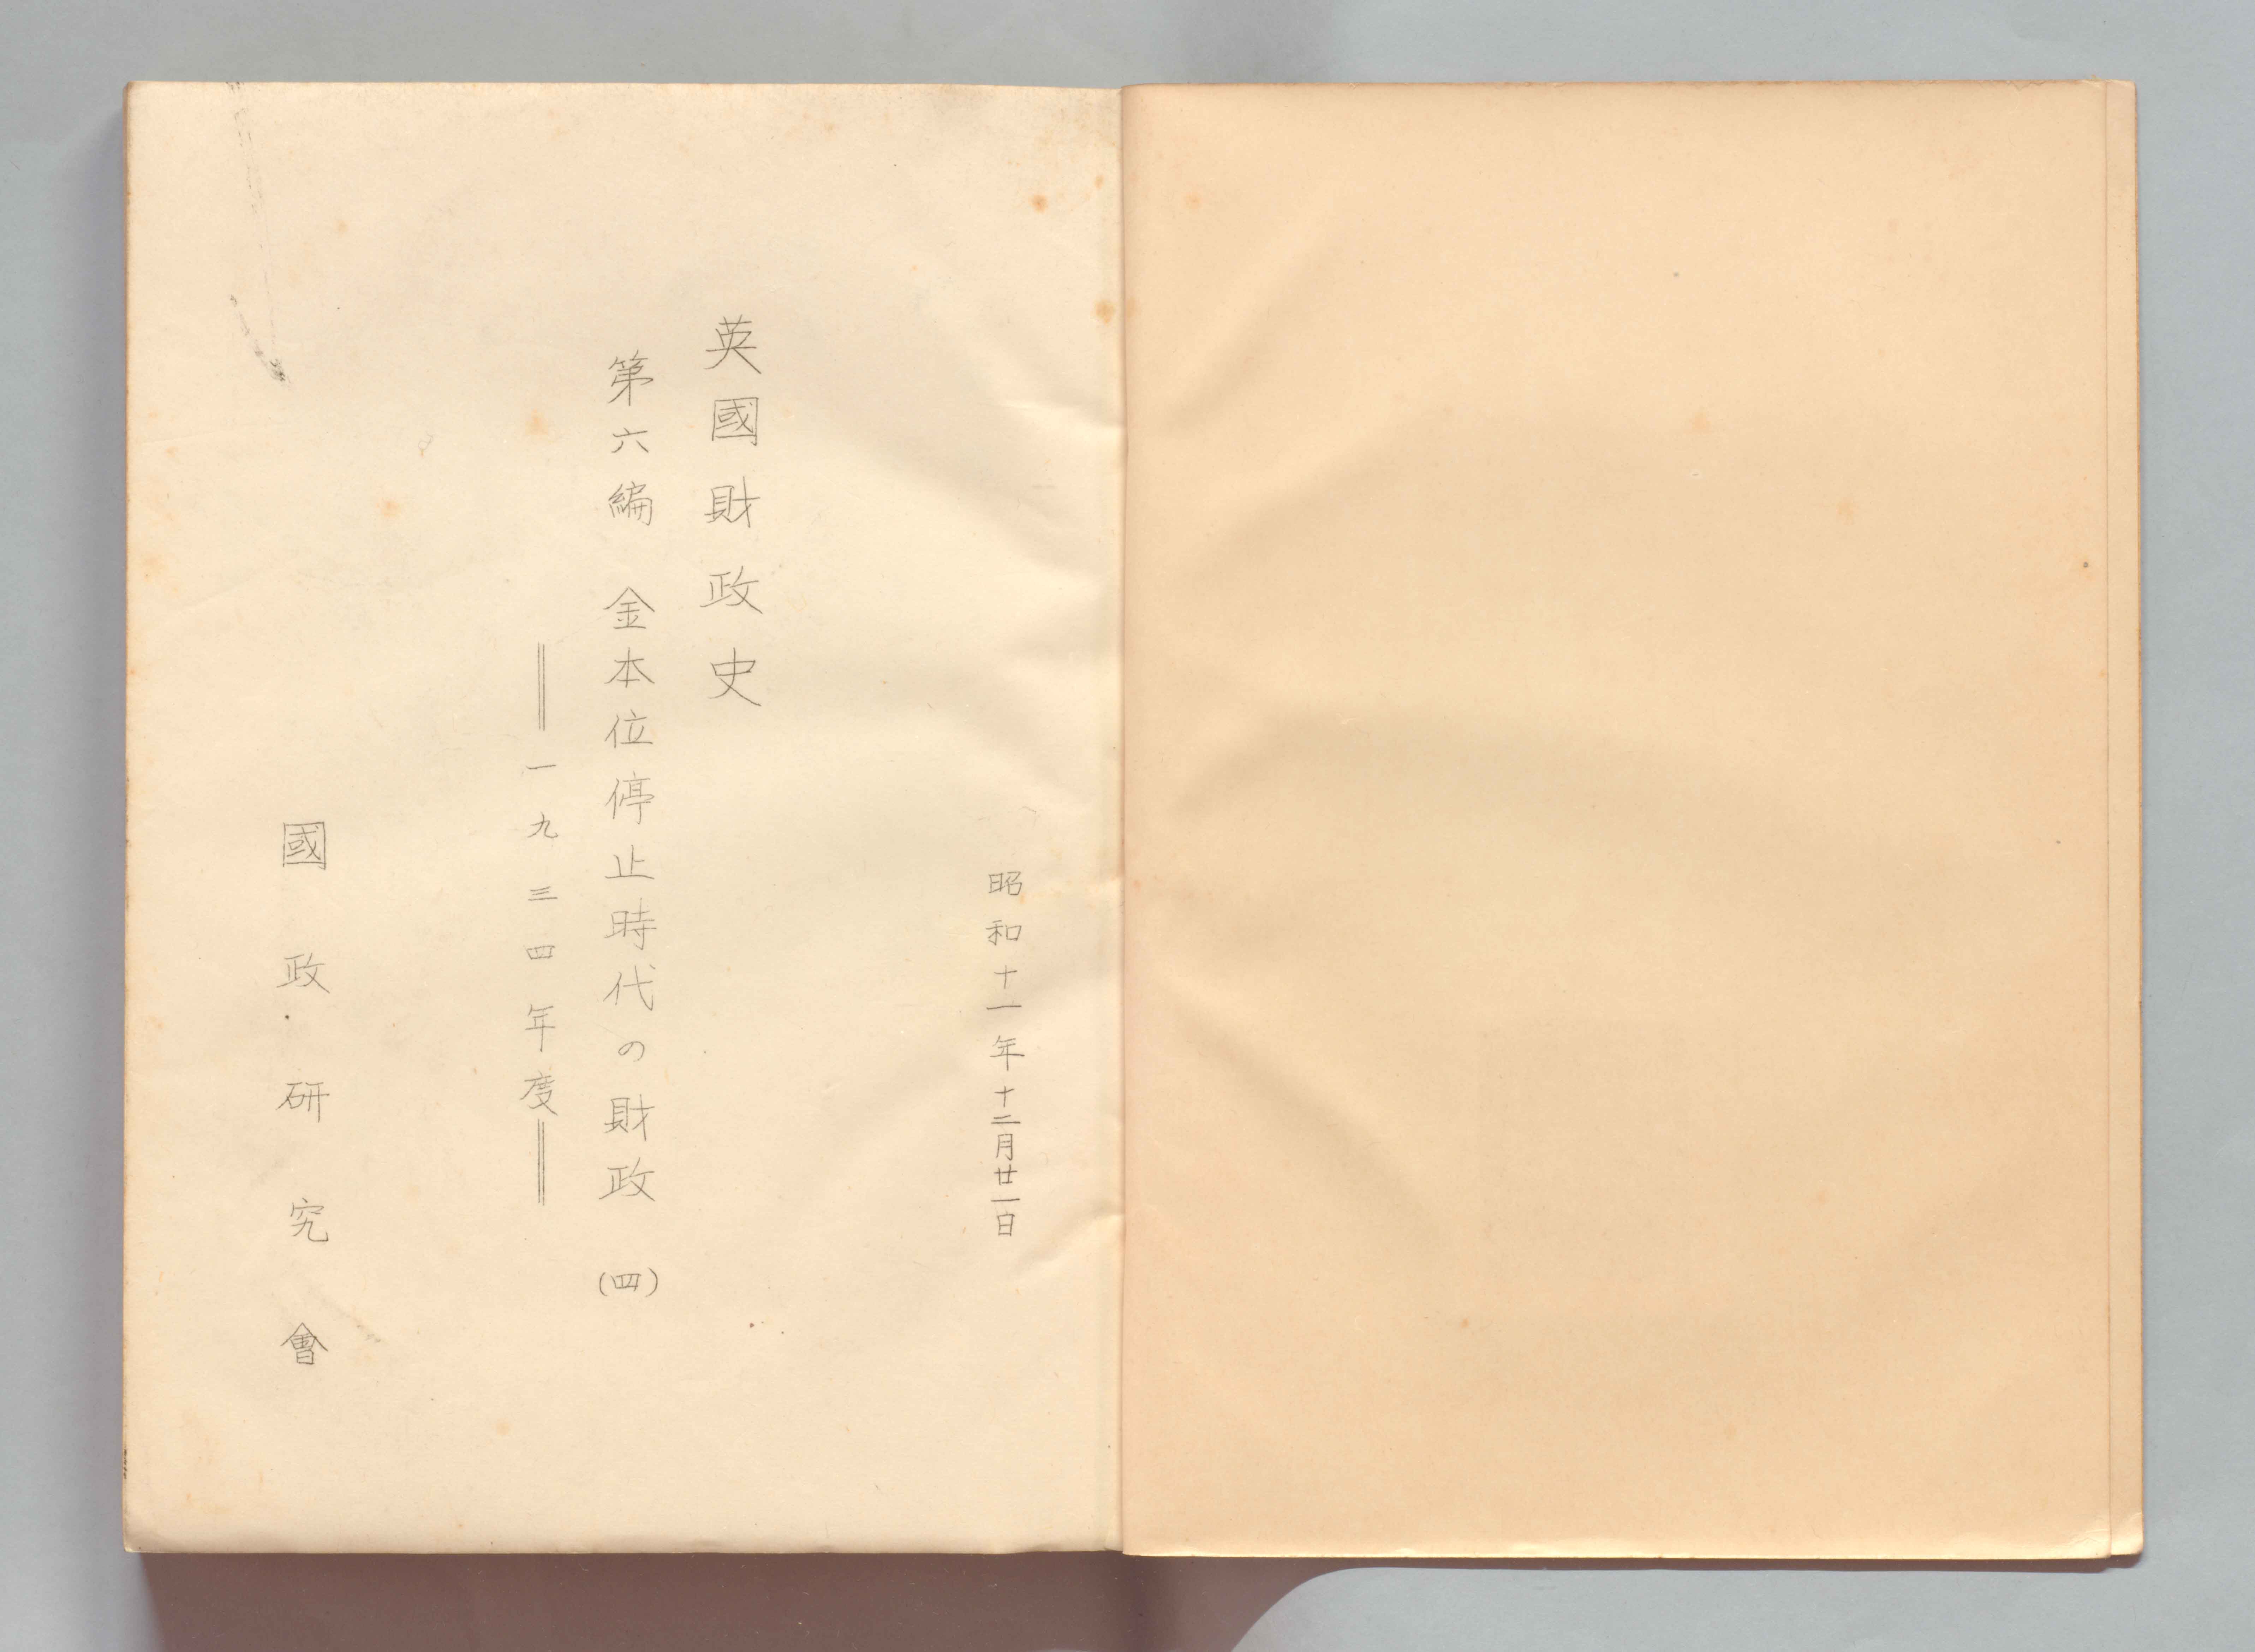 昭和十一年十二月廿一日
英國財政史
第六編 金本位停止時代の財政 (四)
══一九三四年度══
國政研究會